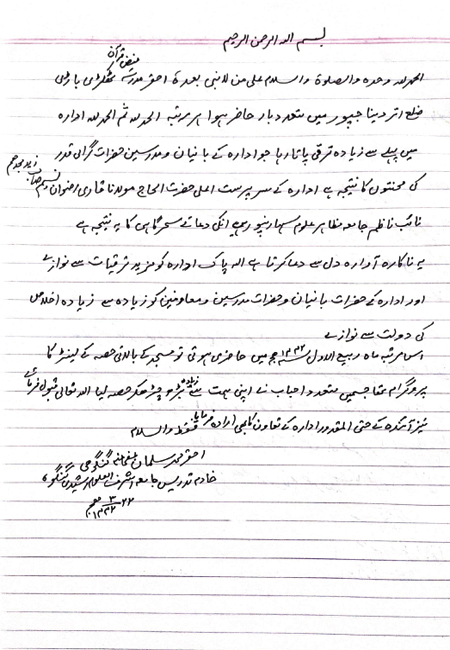 بسم اللہ الرحمن الرحیم
فیض قرآن
الحمدللہ وحدہ والصلوۃ والسلام علی من لا نبی بعدہ احقر مدرسہ باڑی
ضلع اتر دیناجپور میں متعدد بار حاضر ہوا ہر مرتبہ الحمد للہ ثم الحمد للہ ادارہ
میں پہلے سے زیادہ ترقی پاتا رہا جو ادارہ کے بانیان و مدرسین حضرات گرامی قدر
کی محنتوں کا نتیجہ ہے ادارہ کے سرپرست اعلی حضرت الحاج مولانا قاری رضوان نسیم صاحب زید مجدہم
نائب ناظم جامعہ مظاہر علوم سہارنپور ہیں انکی دعائے سحر گاہی کا یہ نتیجہ ہے
یہ ناکارہ آوارہ دل سے دعا کرتا ہے اللہ پاک ادارہ کو مزید ترقیات سے نوازے
اور ادارہ کے حضرات بانیان و حضرات مدرسین و معاونین کو زیادہ سے زیادہ اخلاص
کی دولت سے نوازے
اس مرتبہ ماہ ربیع الاول ۱۴۴۲ھ میں حاضری ہوئی تو مسجد کے بالائی حصہ کے لینٹر کا
پروگرام تھا جسمیں متعدد احباب نے اپنی ہمت سے زیادہ بڑھ چڑھکر حصہ لیا اللہ تعالی قبول فرمائے
نیز آئندہ کے حتی المقدور ادارہ کے تعاون کا بھی ارادہ فرمایا فقط والسلام
احقر محمد سلمان گنگوہی
خادم تدریس جامعہ اشرف العلوم رشیدی گنگوہ